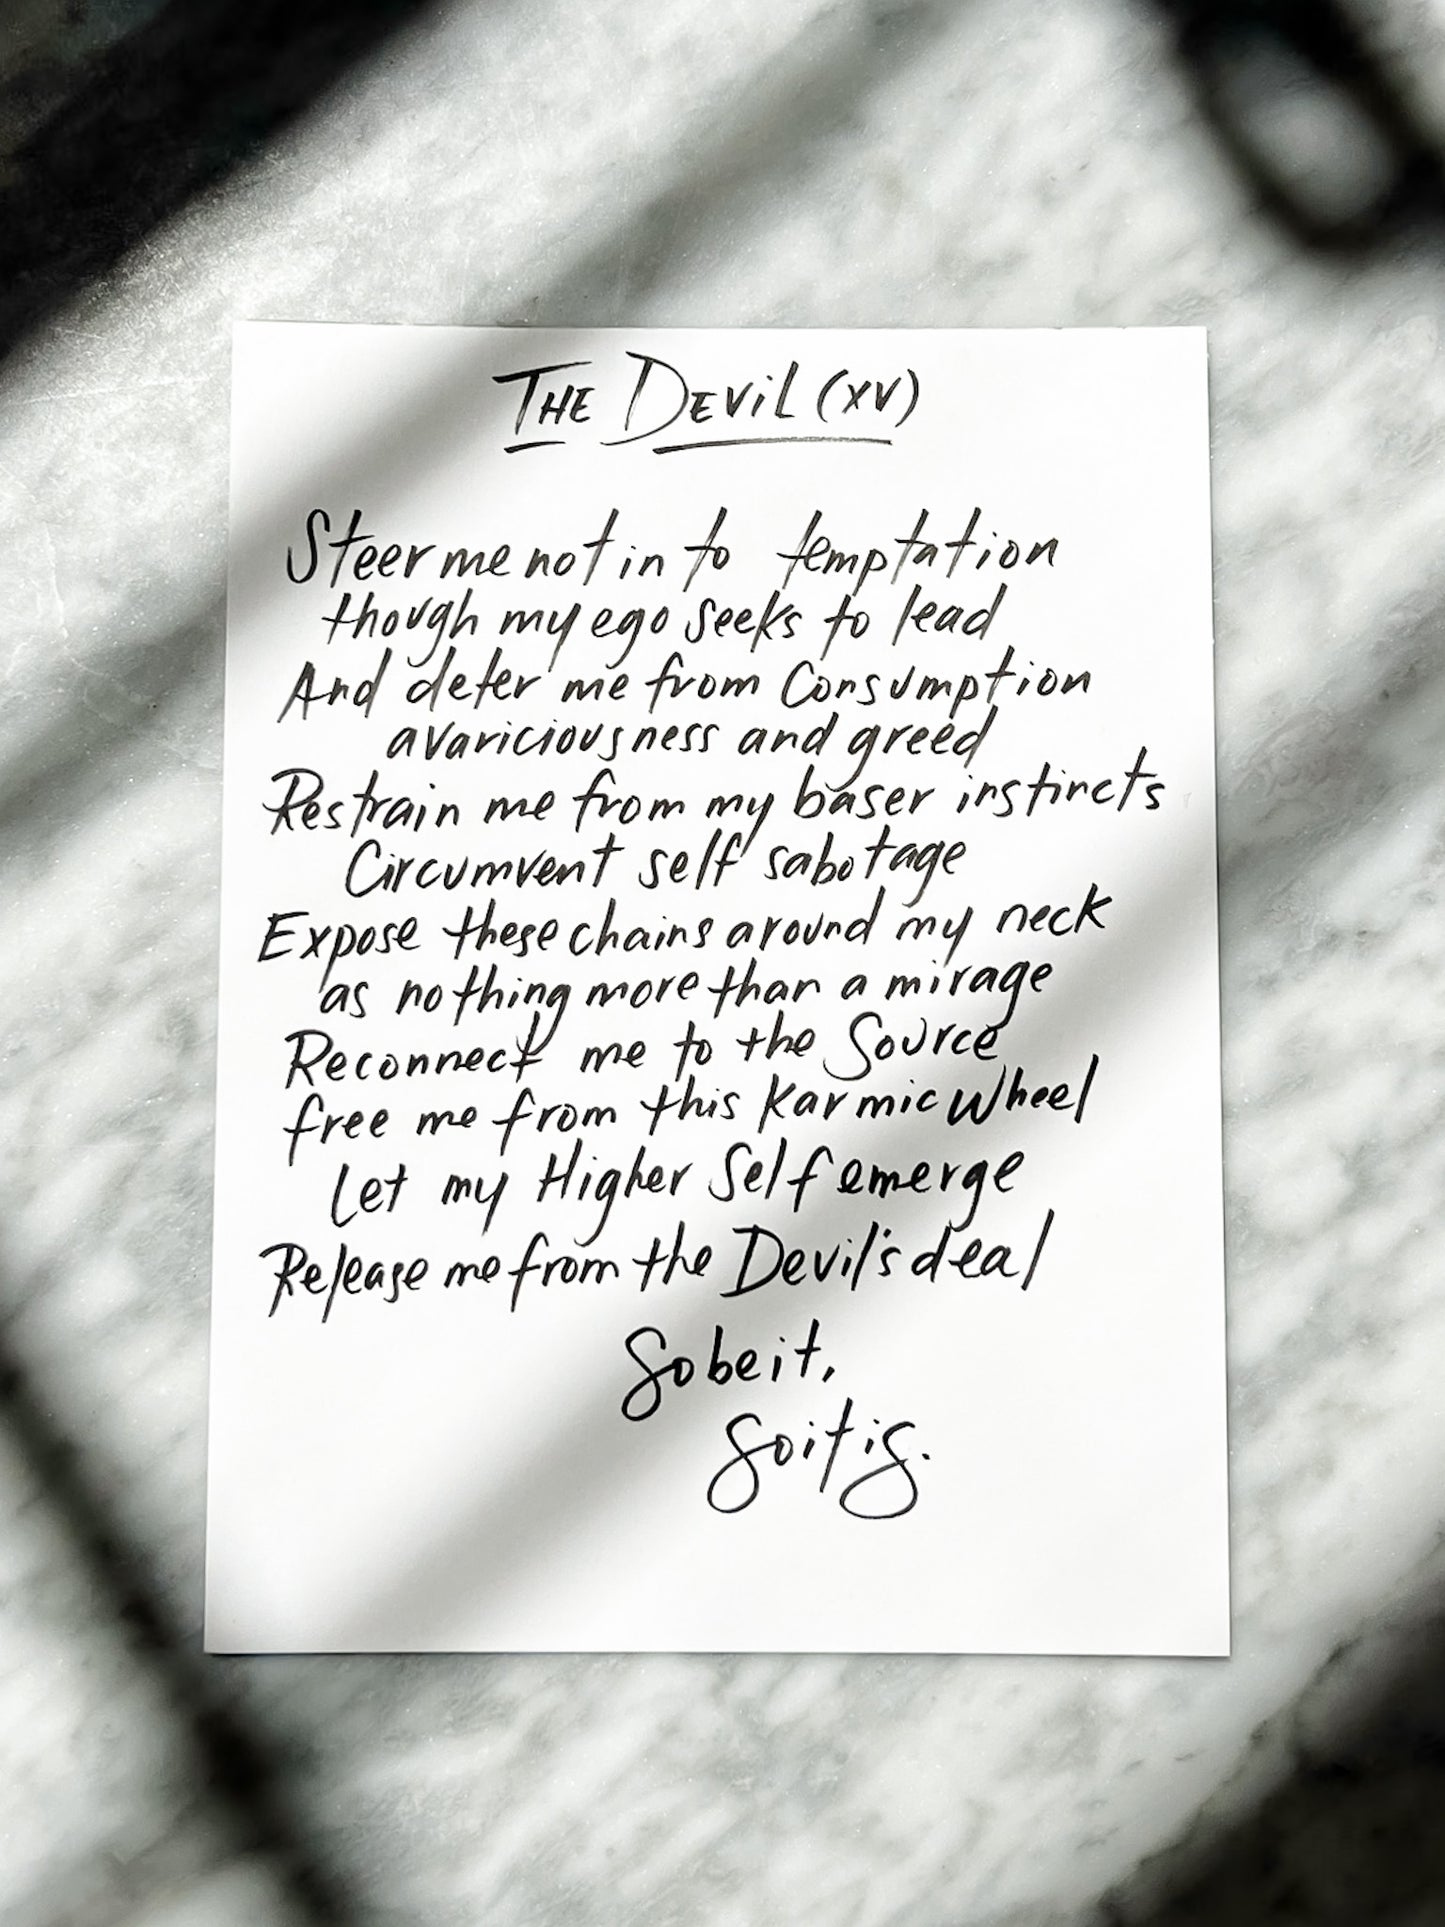 THE DEVIL (XV)
Steer me not in to temptation
though my ego seeks to lead
And deter me from Consumption
avariciousness and greed
Restrain me from my baser instincts
Circumvent self sabotage
Expose these chains around my neck
as nothing more than a mirage
Reconnect me to the Source
free me from this Karmic Wheel
Let my Higher Self emerge
Release me from the Devil's deal
So be it,
So it is.